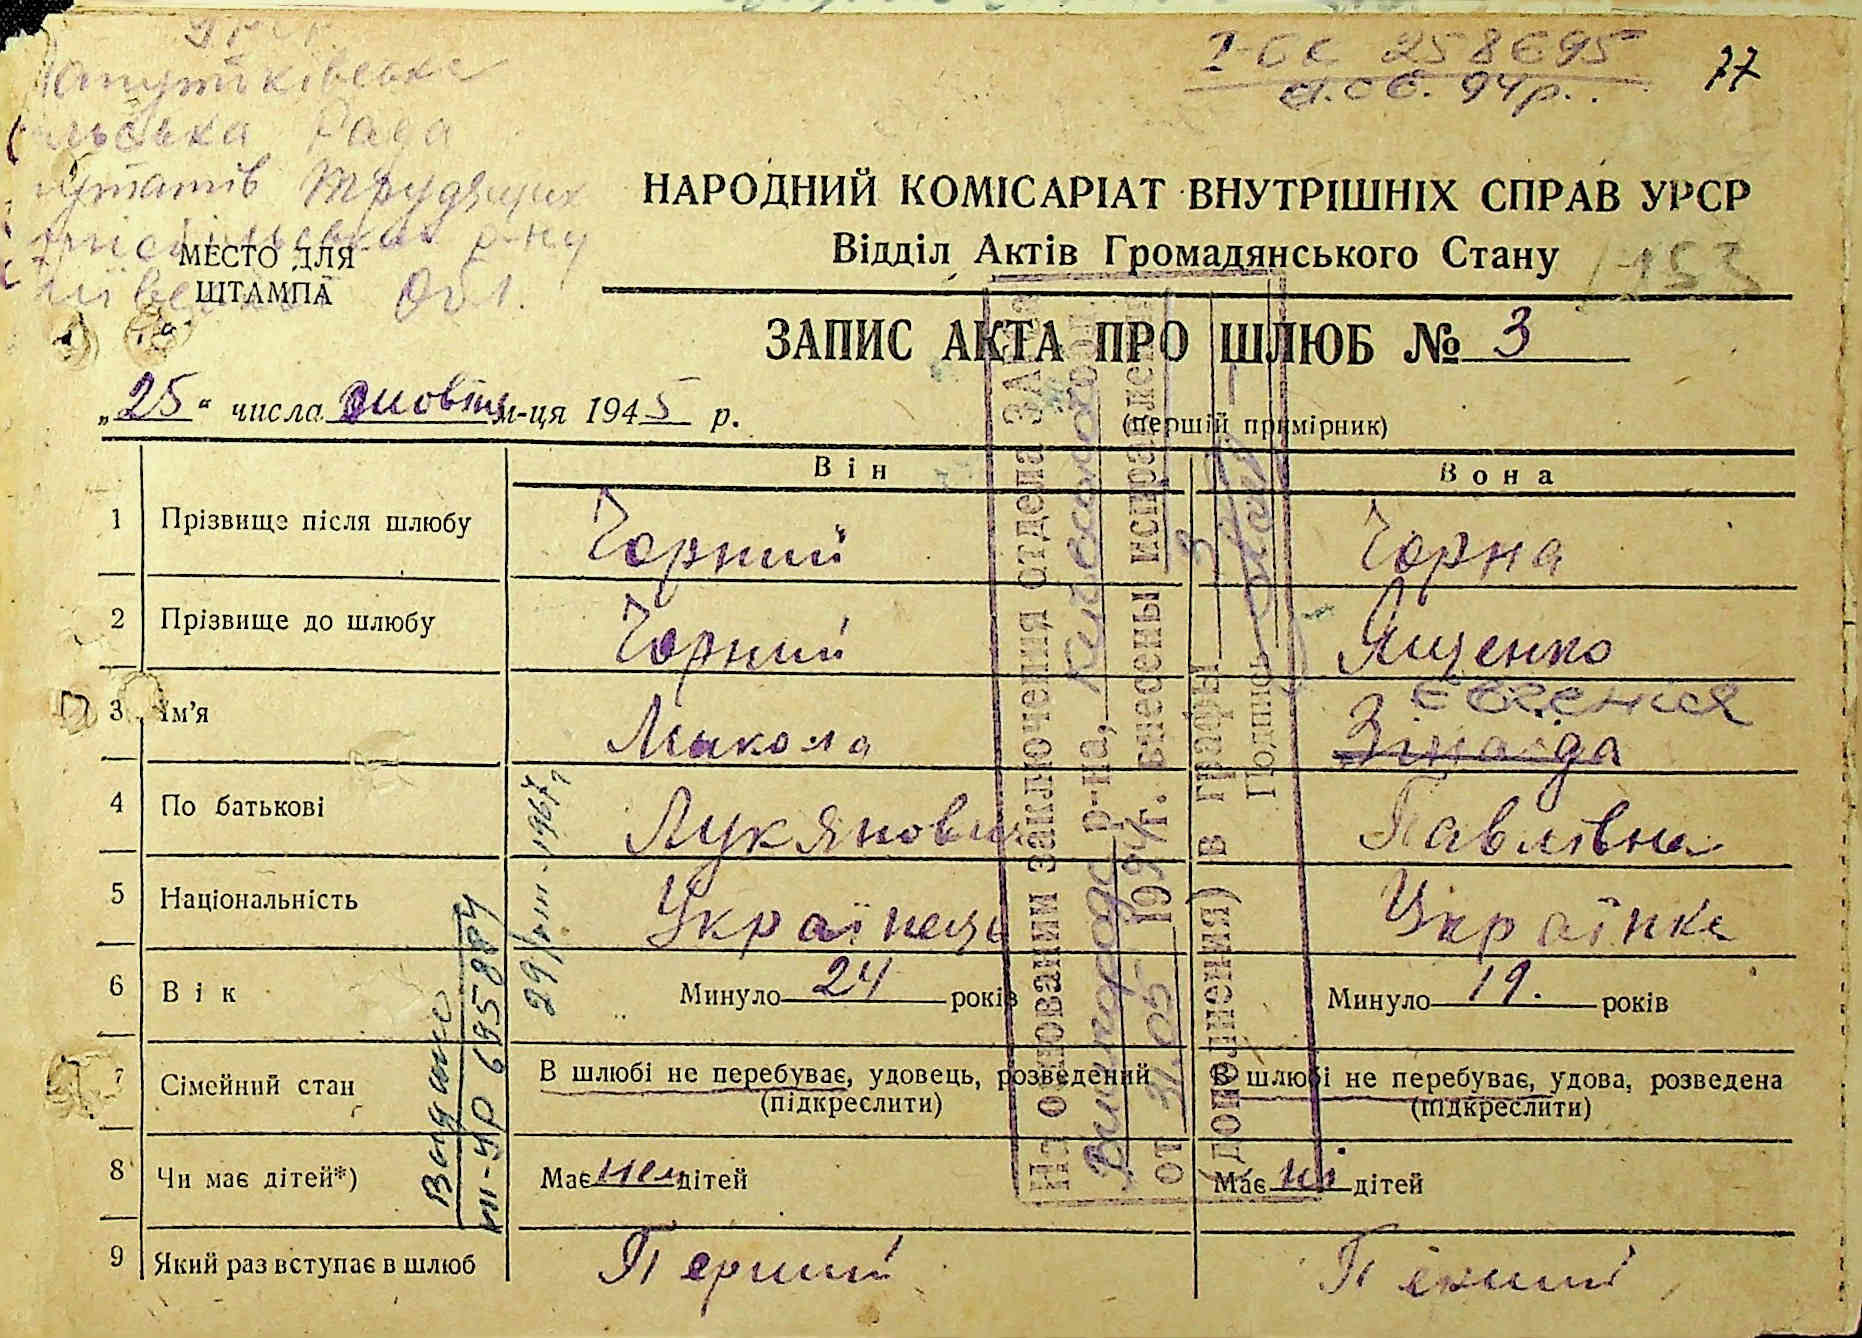 УРСР
льська Рада
Трудящих
р-ну
Обл.
МЕСТО ДЛЯ
ШТАМПА
І-БК 258695
94р.
77
НАРОДНИЙ КОМІСАРІАТ ВНУТРІШНІХ СПРАВ УРСР
Відділ Актів Громадянського Стану
153
ЗАПИС АКТА ПРО ШЛЮБ № 3
„25“ числа жовтня м-ця 1945 р.
(перший примірник)
Він Вона
1 Прізвище після шлюбу Чорний Чорна
2 Прізвище до шлюбу Чорний Ященко
Євгенія
3 Ім'я Микола Зінаіда
4 По батькові Лукянович Павлівна
5 Національність Українець Українка
6 Вік Минуло 24 років Минуло 19. років
7 Сімейний стан В шлюбі не перебуває, удовець, розведений В шлюбі не перебуває, удова, розведена
(підкреслити) (підкреслити)
8 Чи має дітей*) Має нема дітей Має ні дітей
9 Який раз вступає в шлюб Перший Перший
Видано
III-УР 695884
29/VIII-1967
На основании заключения отдела ЗАГСа
р-на,
от 31.05 1994г. внесены исправления
(дополнения) в графы 3
Подпись